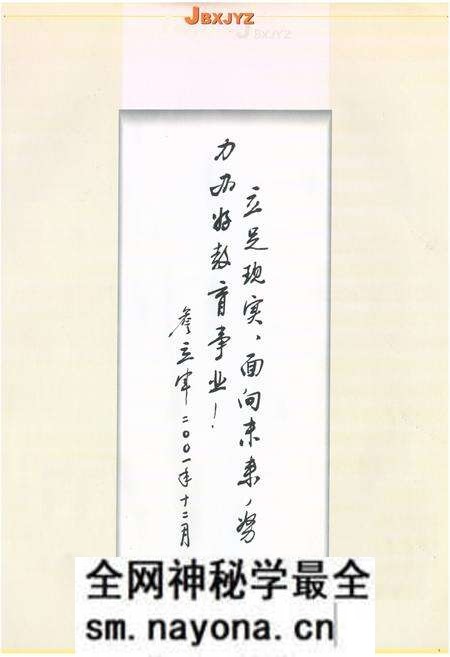 JBXJYZ
JBXJYZ
立足现实、面向未来,努
力办好教育事业!
詹立军二〇〇一年十二月
全网神秘学最全
sm.nayona.cn